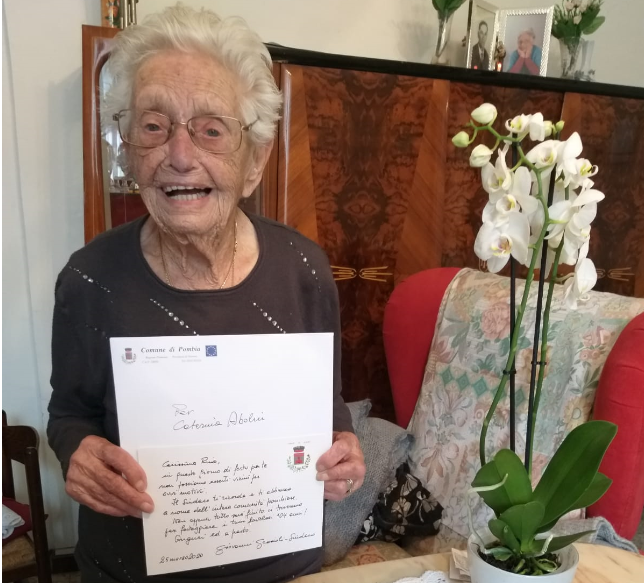 Comune di Pombia
Per
Caterina Abolini
Carissima Rina,
in questo giorno di festa per te
non possiamo esserti vicini per
ovvi motivi.
Il Sindaco ti ricorda e ti abbraccia
a nome dell'intera comunità pombiese.
Non appena tutto sarà finito ci troveremo
per festeggiare i tuoi favolosi 104 anni!
Auguri ed a presto
25 marzo 2020
Sindaco